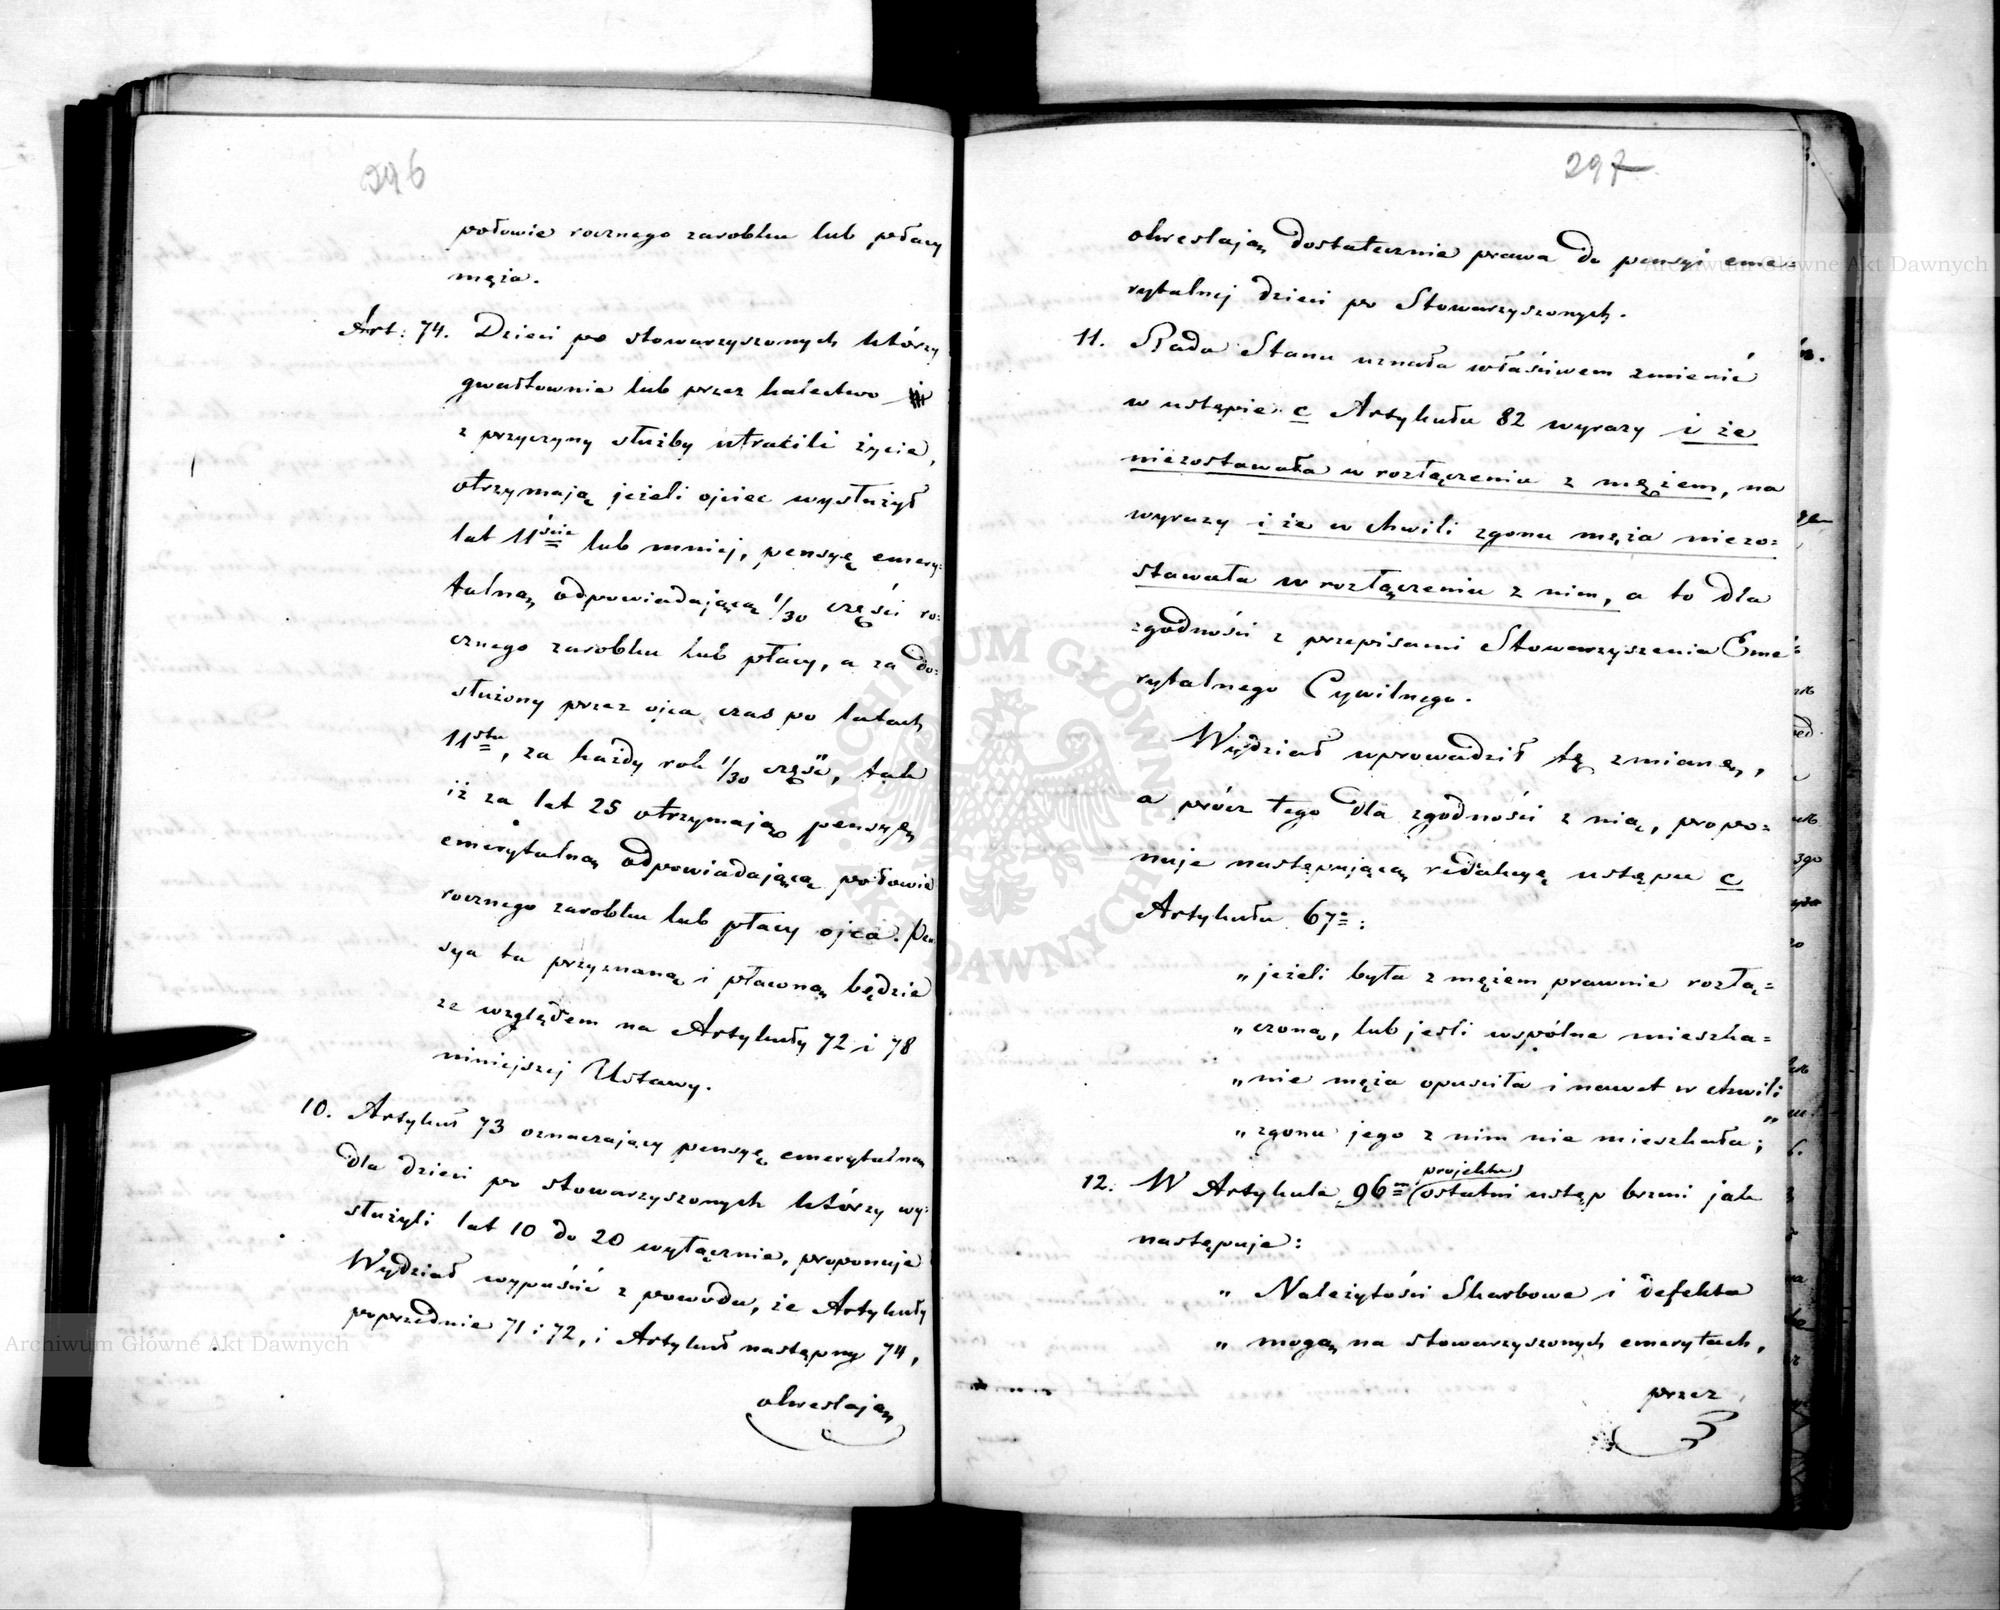 296
połowie rocznego zarobku lub płacy
męża.
Art: 74. Dzieci po stowarzyszonych którzy
gwałtownie lub przez kalectwo
z przyczyny służby utracili życie,
otrzymają jeżeli ojciec wysłużył
lat 11ście lub mniej, pensyę emery-
talną odpowiadającą 11/30 części ro-
cznego zarobku lub płacy, a za do-
służony przez ojca czas po latach
11stu, za każdy rok 1/30 część, tak
iż za lat 25 otrzymają pensyę
emerytalną odpowiadającą połowie
rocznego zarobku lub płacy ojca. Pen-
sya ta przyznaną i płaconą będzie
ze względem na Artykuły 72 i 78
niniejszej Ustawy.
10. Artykuł 73 oznaczający pensyę emerytalną
dla dzieci po stowarzyszonych którzy wy-
służyli lat 10 do 20 wyłącznie, proponuje
Wydział wypuścić z powodu, że Artykuły
poprzednie 71 i 72, i Artykuł następny 74,
okreslają
297
okreslają dostatecznie prawa do pensyi eme-
rytalnej dzieci po Stowarzyszonych.
11. Rada Stanu uznała właściwem zmienić
w ustępie c Artykułu 82 wyrazy i że
niezostawała w rozłączeniu z mężem, na
wyrazy i że w chwili zgonu męża niezo-
stawała w rozłączeniu z nim, a to dla
zgodności z przepisami Stowarzyszenia Eme-
rytalnego Cywilnego.
Wydział uprowadził tę zmianę,
a prócz tego dla zgodności z nią, propo-
nuje następującą redakcyę ustępu c
Artykułu 67=:
„ jeżeli była z mężem prawnie rozłą-
„ czoną, lub jeśli wspólne mieszka-
„ nie męża opuściła i nawet w chwili
„ zgonu jego z nim nie mieszkała; "
12. W Artykule 96m (projektu) ostatni ustęp brzmi jak
następuje:
„ Należytości Skarbowe i defekta
„ mogą na stowarzyszonych emerytach,
przez
Archiwum Główne Akt Dawnych
Archiwum Główne Akt Dawnych
ARCHIWUM GŁÓWNE AKT DAWNYCH